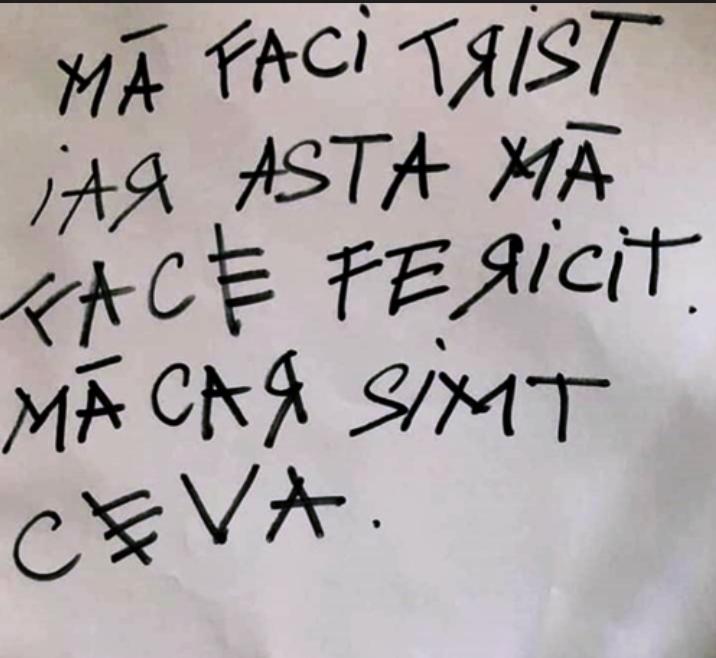 MĀ FACi TRiST
iAR ASTA MĀ
FACE FERiCiT.
MĀCAR SiMT
CEVA.